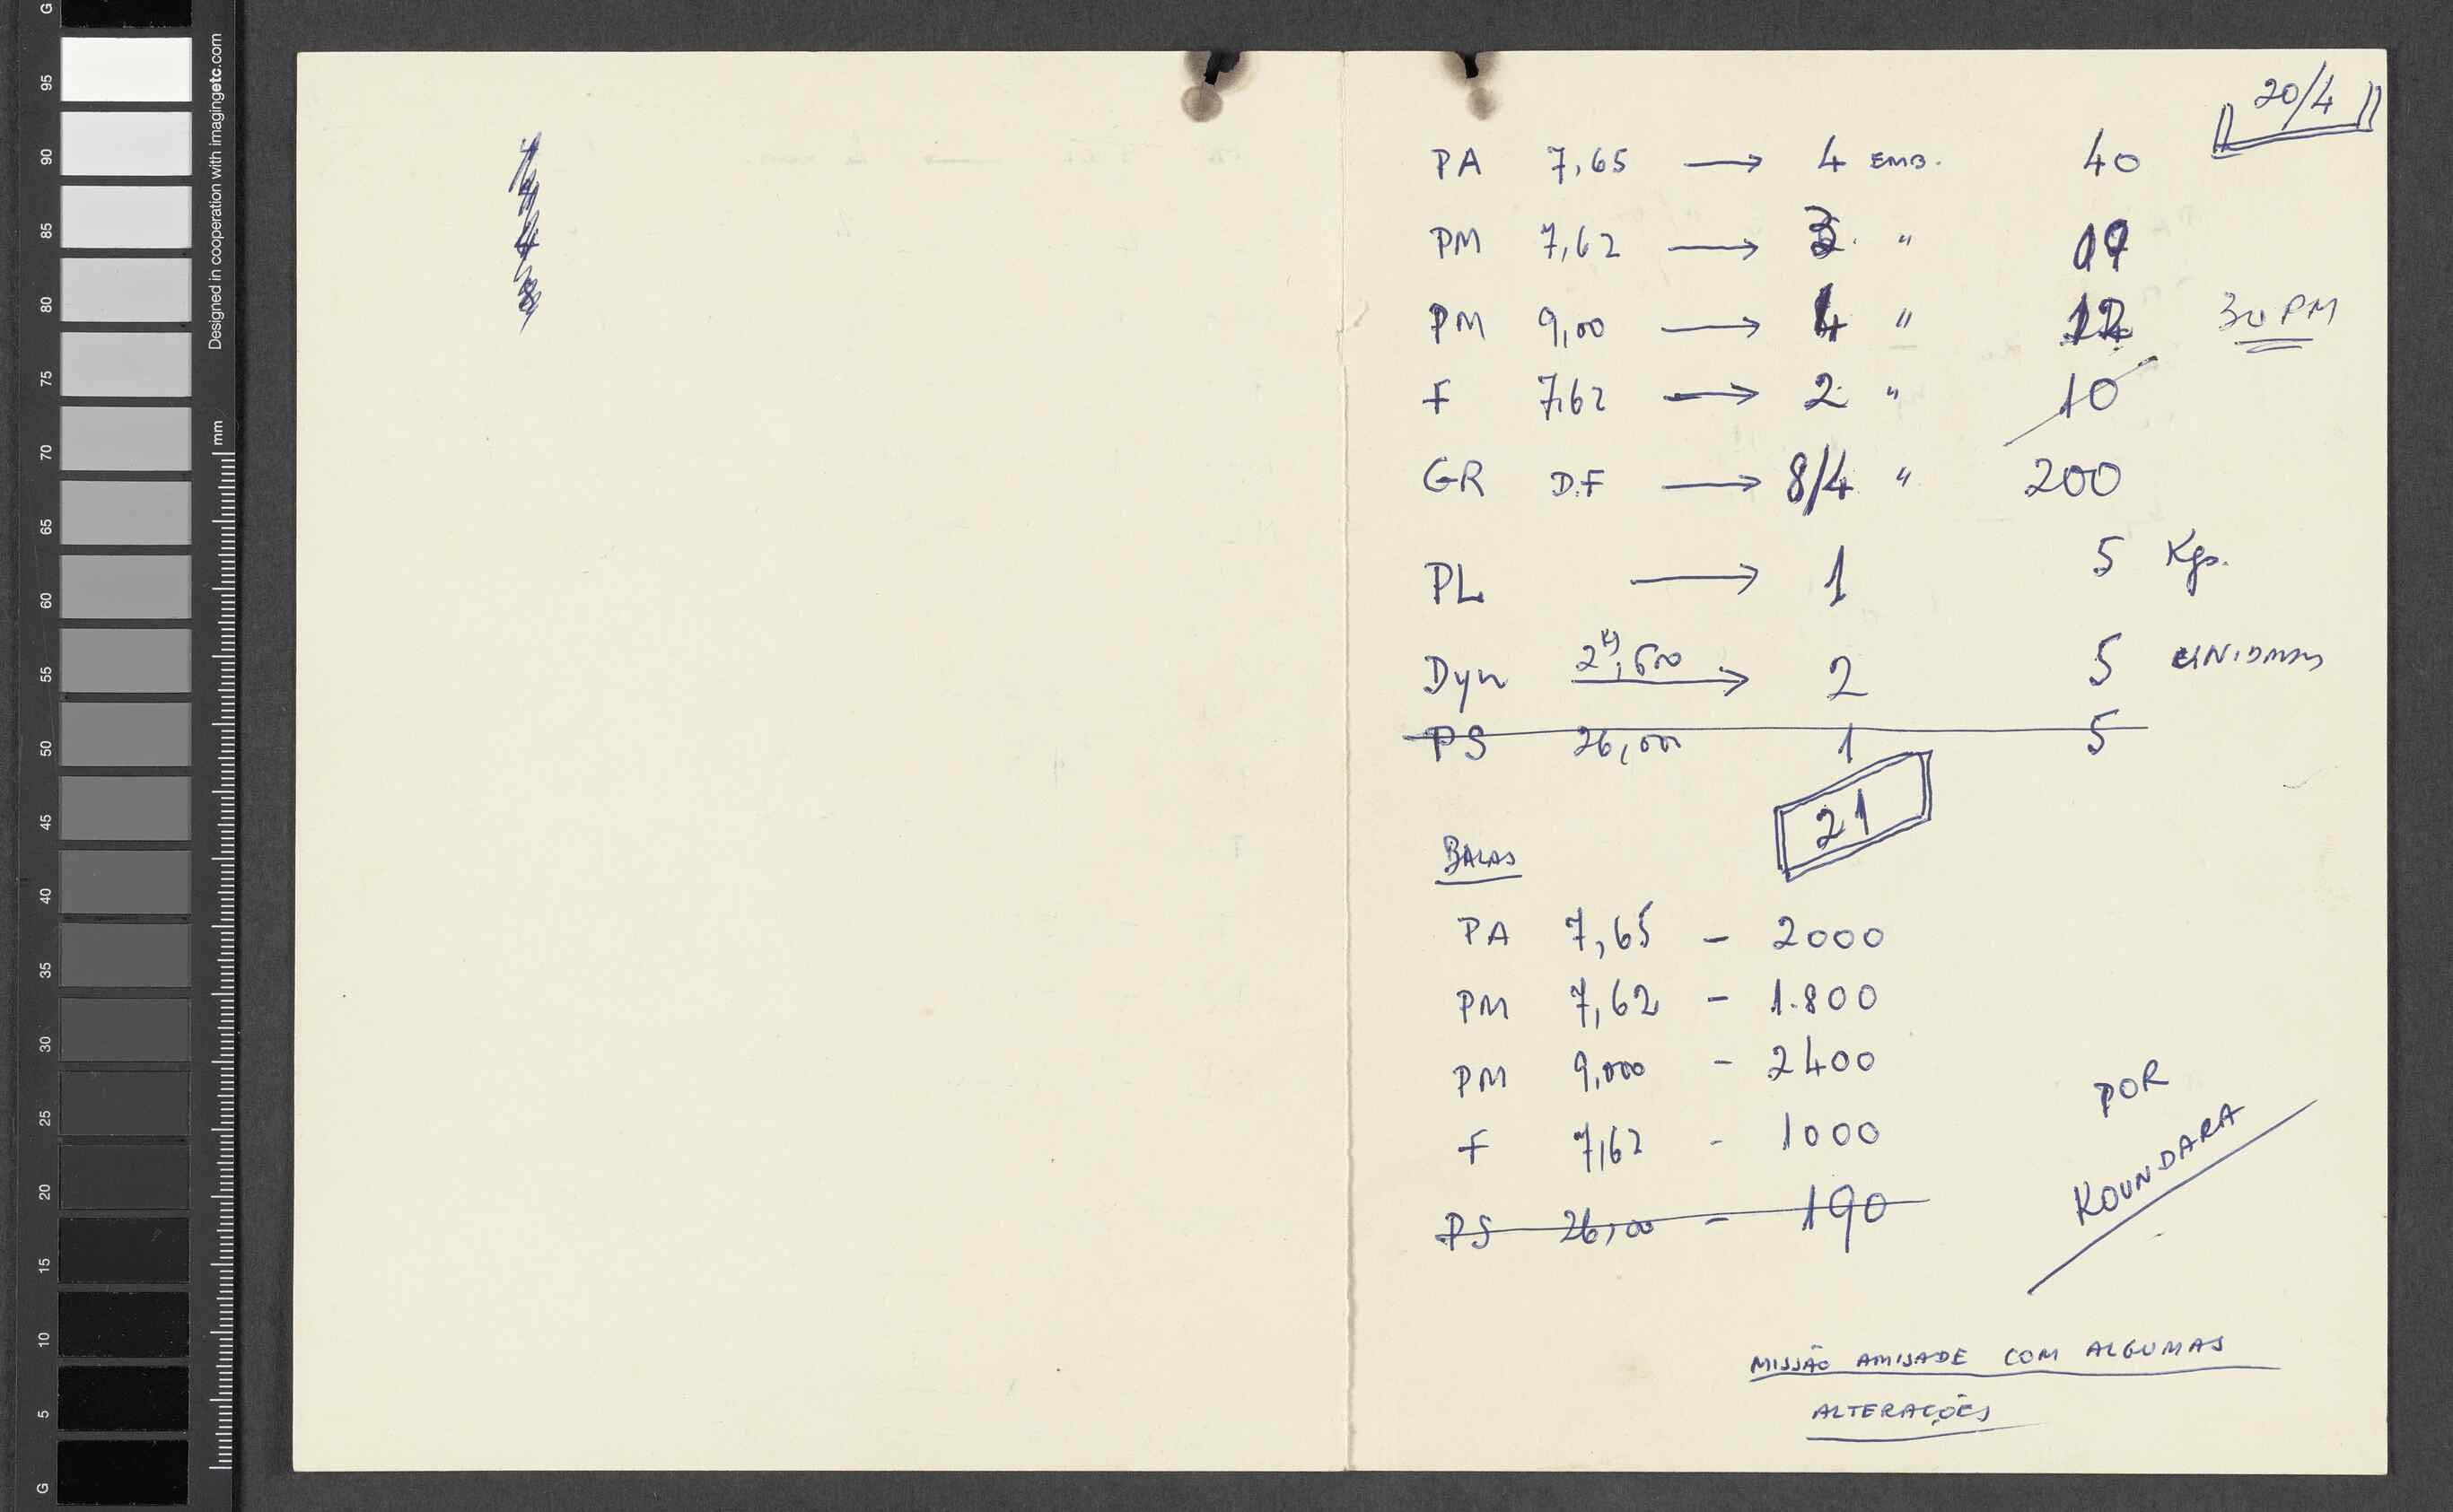 20/4
PA 7,65 → 4 EMB. 40
PM 7,62 → 3 "
PM 9,00 → 4 " 12 30 PM
F 7,62 → 2 " 10
GR D.F → 8/4 " 200
PL → 1 5 Kgs.
Dyn 2kg,500 → 2 5 UNIDADES
PS 26,000 1 5
21
BALAS
PA 7,65 - 2000
PM 7,62 - 1.800
PM 9,000 - 2400
F 7,62 - 1000
PS 26,00 - 190
POR
KOUNDARA
MISSÃO AMISADE COM ALGUMAS
ALTERAÇÕES
Designed in cooperation with imagingetc.com
mm
G 95 90 85 80 75 70 65 60 55 50 45 40 35 30 25 20 15 10 5 G